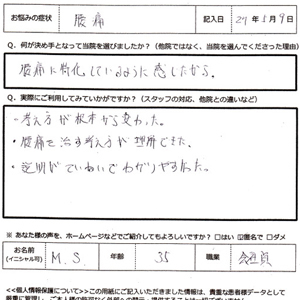 お悩みの症状 腰痛 記入日 27年5月9日
Q. 何が決め手となって当院を選びましたか？（他院ではなく、当院を選んでくださった理由）
腰痛に特化しているように感じたから。
Q. 実際にご利用してみていかがですか？（スタッフの対応、他院との違いなど）
・考え方が根本から変わった。
・腰痛を治す考え方が理解できた。
・説明がていねいでわかりやすかった。
※ あなた様の声を、ホームページなどでご紹介してもよろしいですか？ □はい ☑匿名で □ダメ
お名前（イニシャル可） M.S. 年齢 35 職業 会社員
<<個人情報保護について>>この用紙にご記入いただきました情報は、貴重な患者様データとして